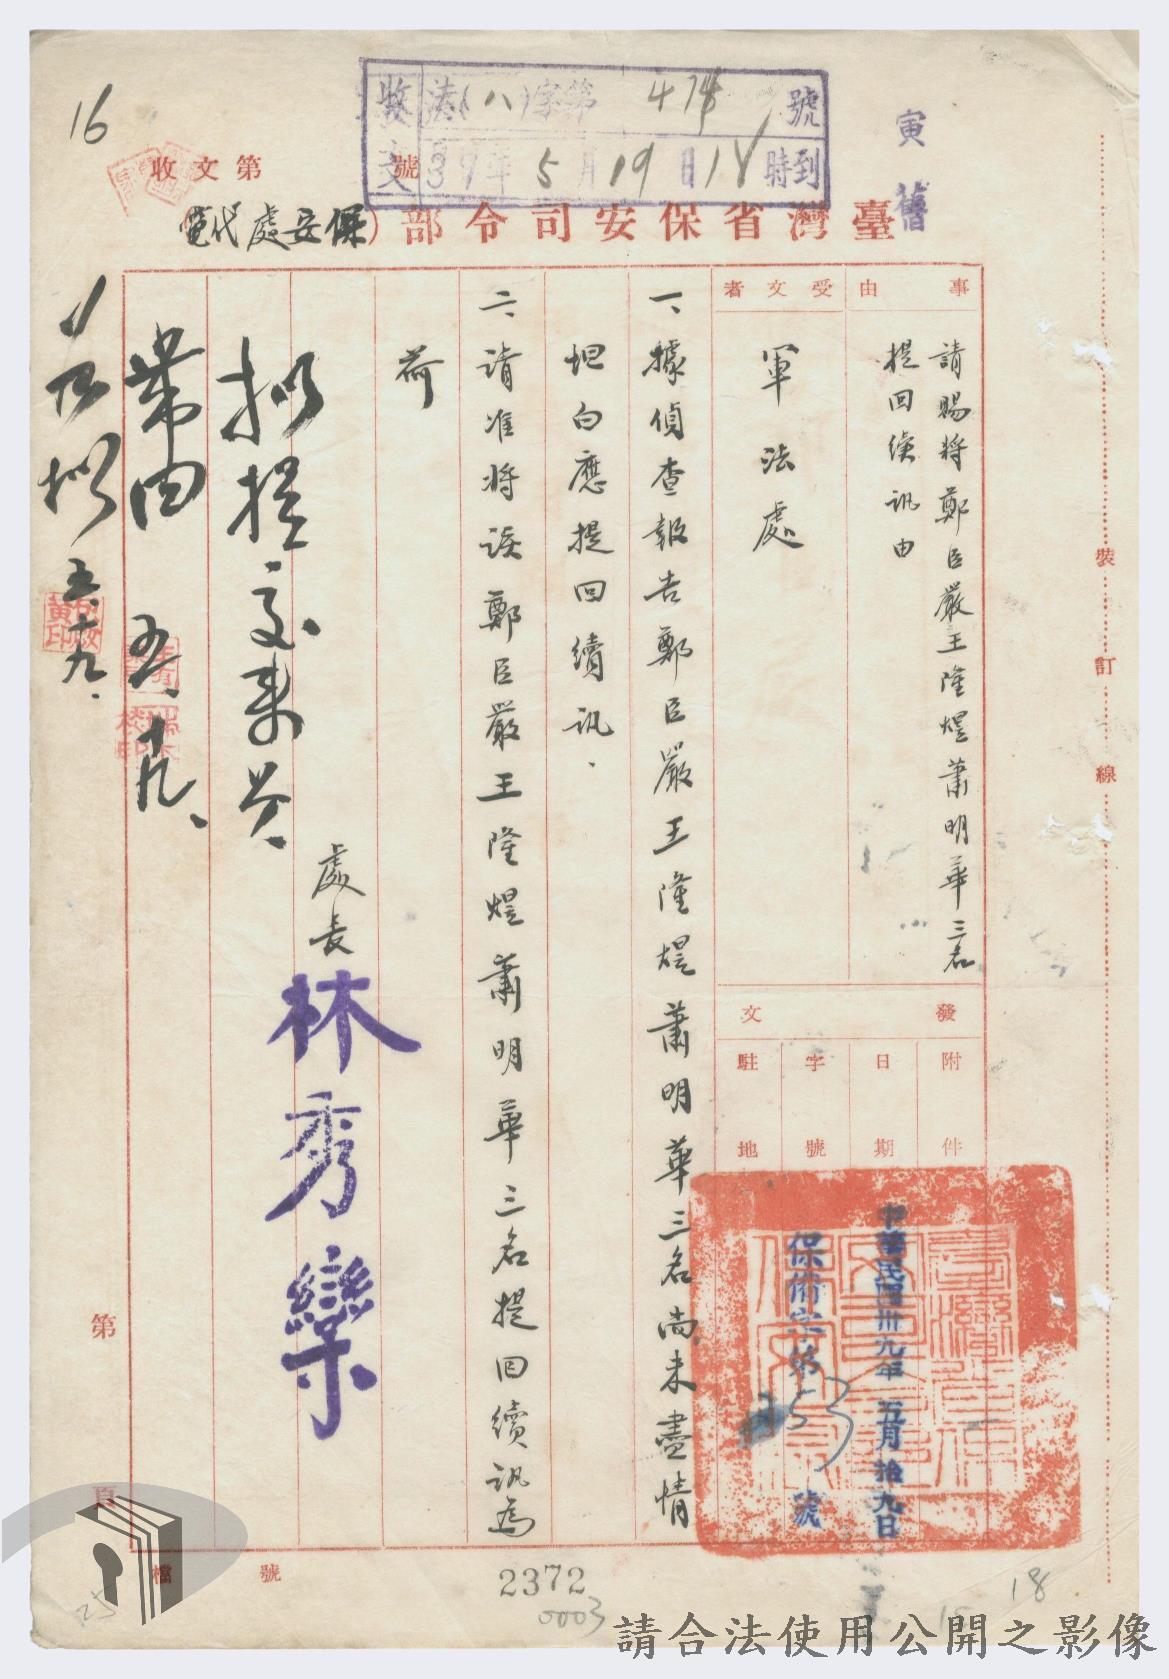 收文
法(八)字第 474 號
39年5月19日18時到
寅
舊
16
收文第 號
臺灣省保安司令部(保安處代電
事由
請賜將鄭臣嚴王隆焜蕭明華三名
提回續訊由
受文者
軍法處
發文
附件
日期
中華民國卅九年五月拾九日
字號
保備字第 53 號
駐地
一、據偵查報告鄭臣嚴王隆焜蕭明華三名尚未盡情
坦白應提回續訊.
二、請准將該鄭臣嚴王隆焜蕭明華三名提回續訊為
荷
處長 林秀欒
擬提交來人
帶回 五、十九、
如擬 五、十九、
裝訂線
第 頁
檔號
2372
0003
25
15
18
請合法使用公開之影像